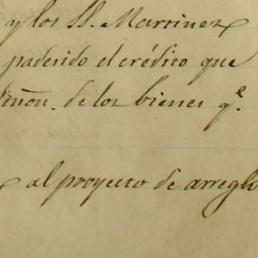 y los SS. Martinez
padecido el crédito que
de los bienes q.e
al proyecto de arreglo